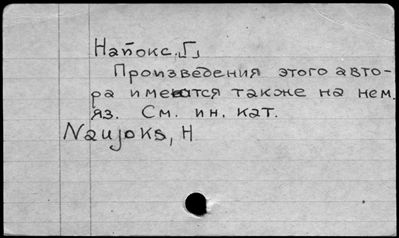 Напокс, Г.
Произведения этого авто-
ра имеются также на нем.
яз. См. ин. кат.
Naujoks, H